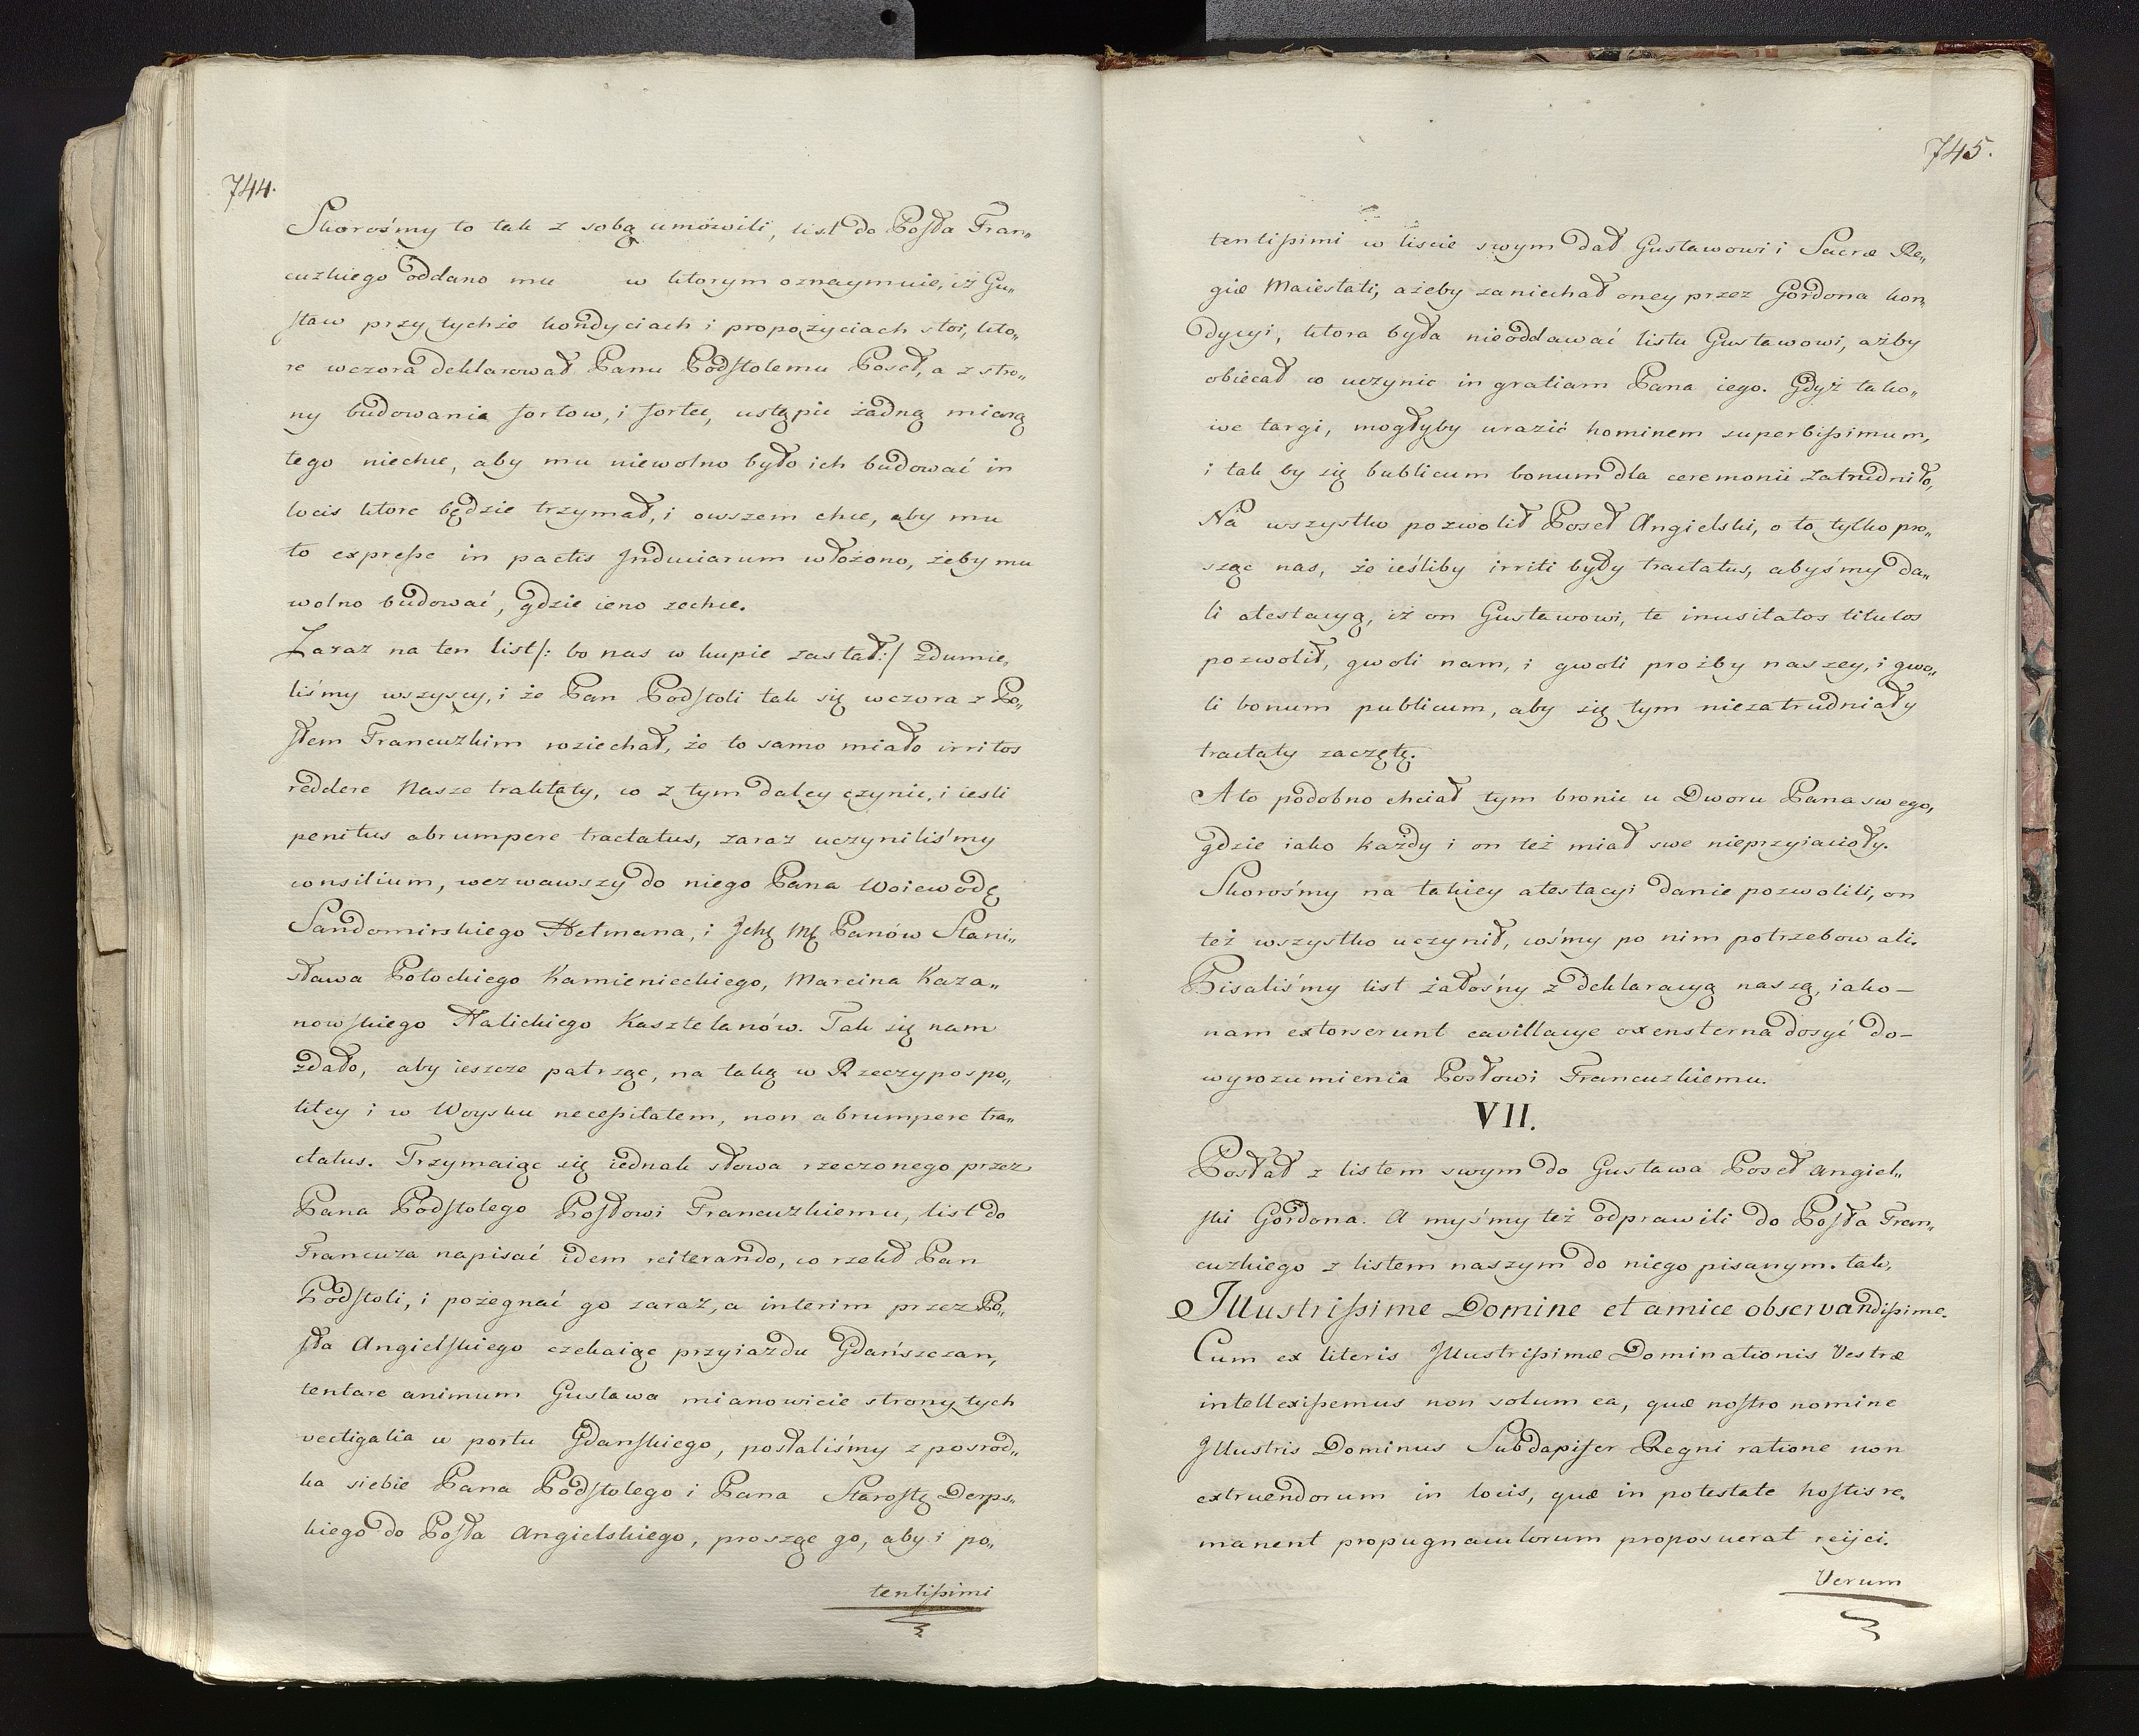 744.
Skorośmy to tak z sobą umówili, list do Posła Fran„
cuzkiego oddano mu w ktorym oznaymuie, iż Gu„
staw przy tychże kondyciach i propozyciach stoi, kto„
re wczora deklarował Panu Podstolemu Poseł, a z stro„
ny budowania fortow, i fortec, ustąpic żadną miarą
tego niechce, aby mu niewolno było ich budować in
locis ktore będzie trzymał, i owszem chce, aby mu
to expresse in pactis Induciarum włożono, żeby mu
wolno budować, gdzie ieno zechce.
Zaraz na ten list /: bo nas w kupie zastał :/ zdumie„
liśmy wszyscy, i że Pan Podstoli tak się wczora z Po„
słem Francuzkim roziechał, że to samo miało irritos
reddere Nasze traktaty, co z tym daley czynic, i iesli
penitus abrumpere tractatus, zaraz uczyniliśmy
consilium, wezwawszy do niego Pana Woiewodę
Sandomirskiego Hetmana, i Ichę Mę Panów Stani„
sława Potockiego Kamienieckiego, Marcina Kaza„
nowskiego Halickiego Kasztelanów. Tak się nam
zdało, aby ieszcze patrząc, na taką w Rzeczypospo„
litey i w Woysku necessitatem, non abrumpere tra„
ctatus. Trzymaiąc się iednak słowa rzeczonego przez
Pana Podstolego Posłowi Francuzkiemu, list do
Francuza napisać idem reiterando, co rzekł Pan
Podstoli, i pożegnać go zaraz, a interim przez Po„
sła Angielskiego czekaiąc przyiazdu Gdańszczan,
tentare animum Gustawa mianowicie strony tych
vectigalia w portu Gdanskiego, posłaliśmy z posrod„
ka siebie Pana Podstolego i Pana Starostę Derps„
kiego do Posła Angielskiego, prosząc go, aby i po„
tentissimi
745.
tentissimi w liscie swym dał Gustawowi i Sacræ Re„
giæ Maiestati, ażeby zaniechał oney przez Gordona kon„
dycyi, ktora była nieoddawać listu Gustawowi, ażby
obiecał co uczynic in gratiam Pana iego. Gdyż tako„
we targi, mogłyby urazić hominem superbissimum,
i tak by się bublicum bonum dla ceremonii zatrudniło,
Na wszystko pozwolił Poseł Angielski, o to tylko pro„
sząc nas, że ieśliby irriti były tractatus, abyśmy da„
li atestacyą, iż on Gustawowi, te inusitatos titulos
pozwolił, gwoli nam, i gwoli proźby naszey, i gwo„
li bonum publicum, aby się tym niezatrudniały
tractaty zaczętę.
A to podobno chciał tym bronic u Dworu Pana swego,
gdzie iako każdy i on też miał swe nieprzyiacioły.
Skorośmy na takiey atestacyi danie pozwolili, on
też wszystko uczynił, cośmy po nim potrzebowali.
Pisaliśmy list żałośny z deklaracyą naszą, iako—
nam extorserunt cavillacye oxensterna dosyć do—
wyrozumienia Posłowi Francuzkiemu.
VII.
Posłał z listem swym do Gustawa Poseł Angiel„
ski Gordona. A myśmy też odprawili do Posła Fran„
cuzkiego z listem naszym do niego pisanym. tak,
Illustrissime Domine et amice observandissime.
Cum ex literis Illustrissimæ Dominationis Vestræ
intellexissemus non solum ea, quæ nostro nomine
Illustris Dominus Subdapifer Regni ratione non
extruendorum in locis, quæ in potestate hostis re„
manent propugnaculorum proposuerat reijci.
Verum